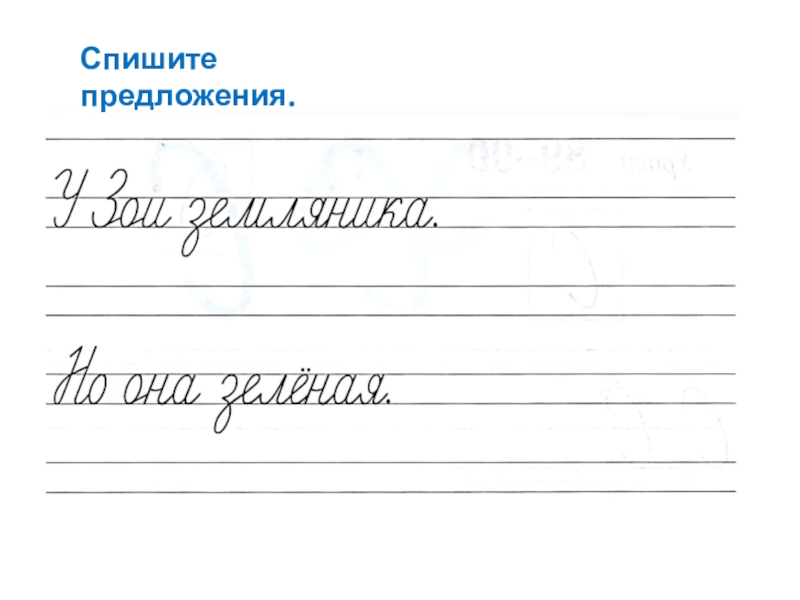 Спишите
предложения.
У Зои земляника.
Но она зелёная.